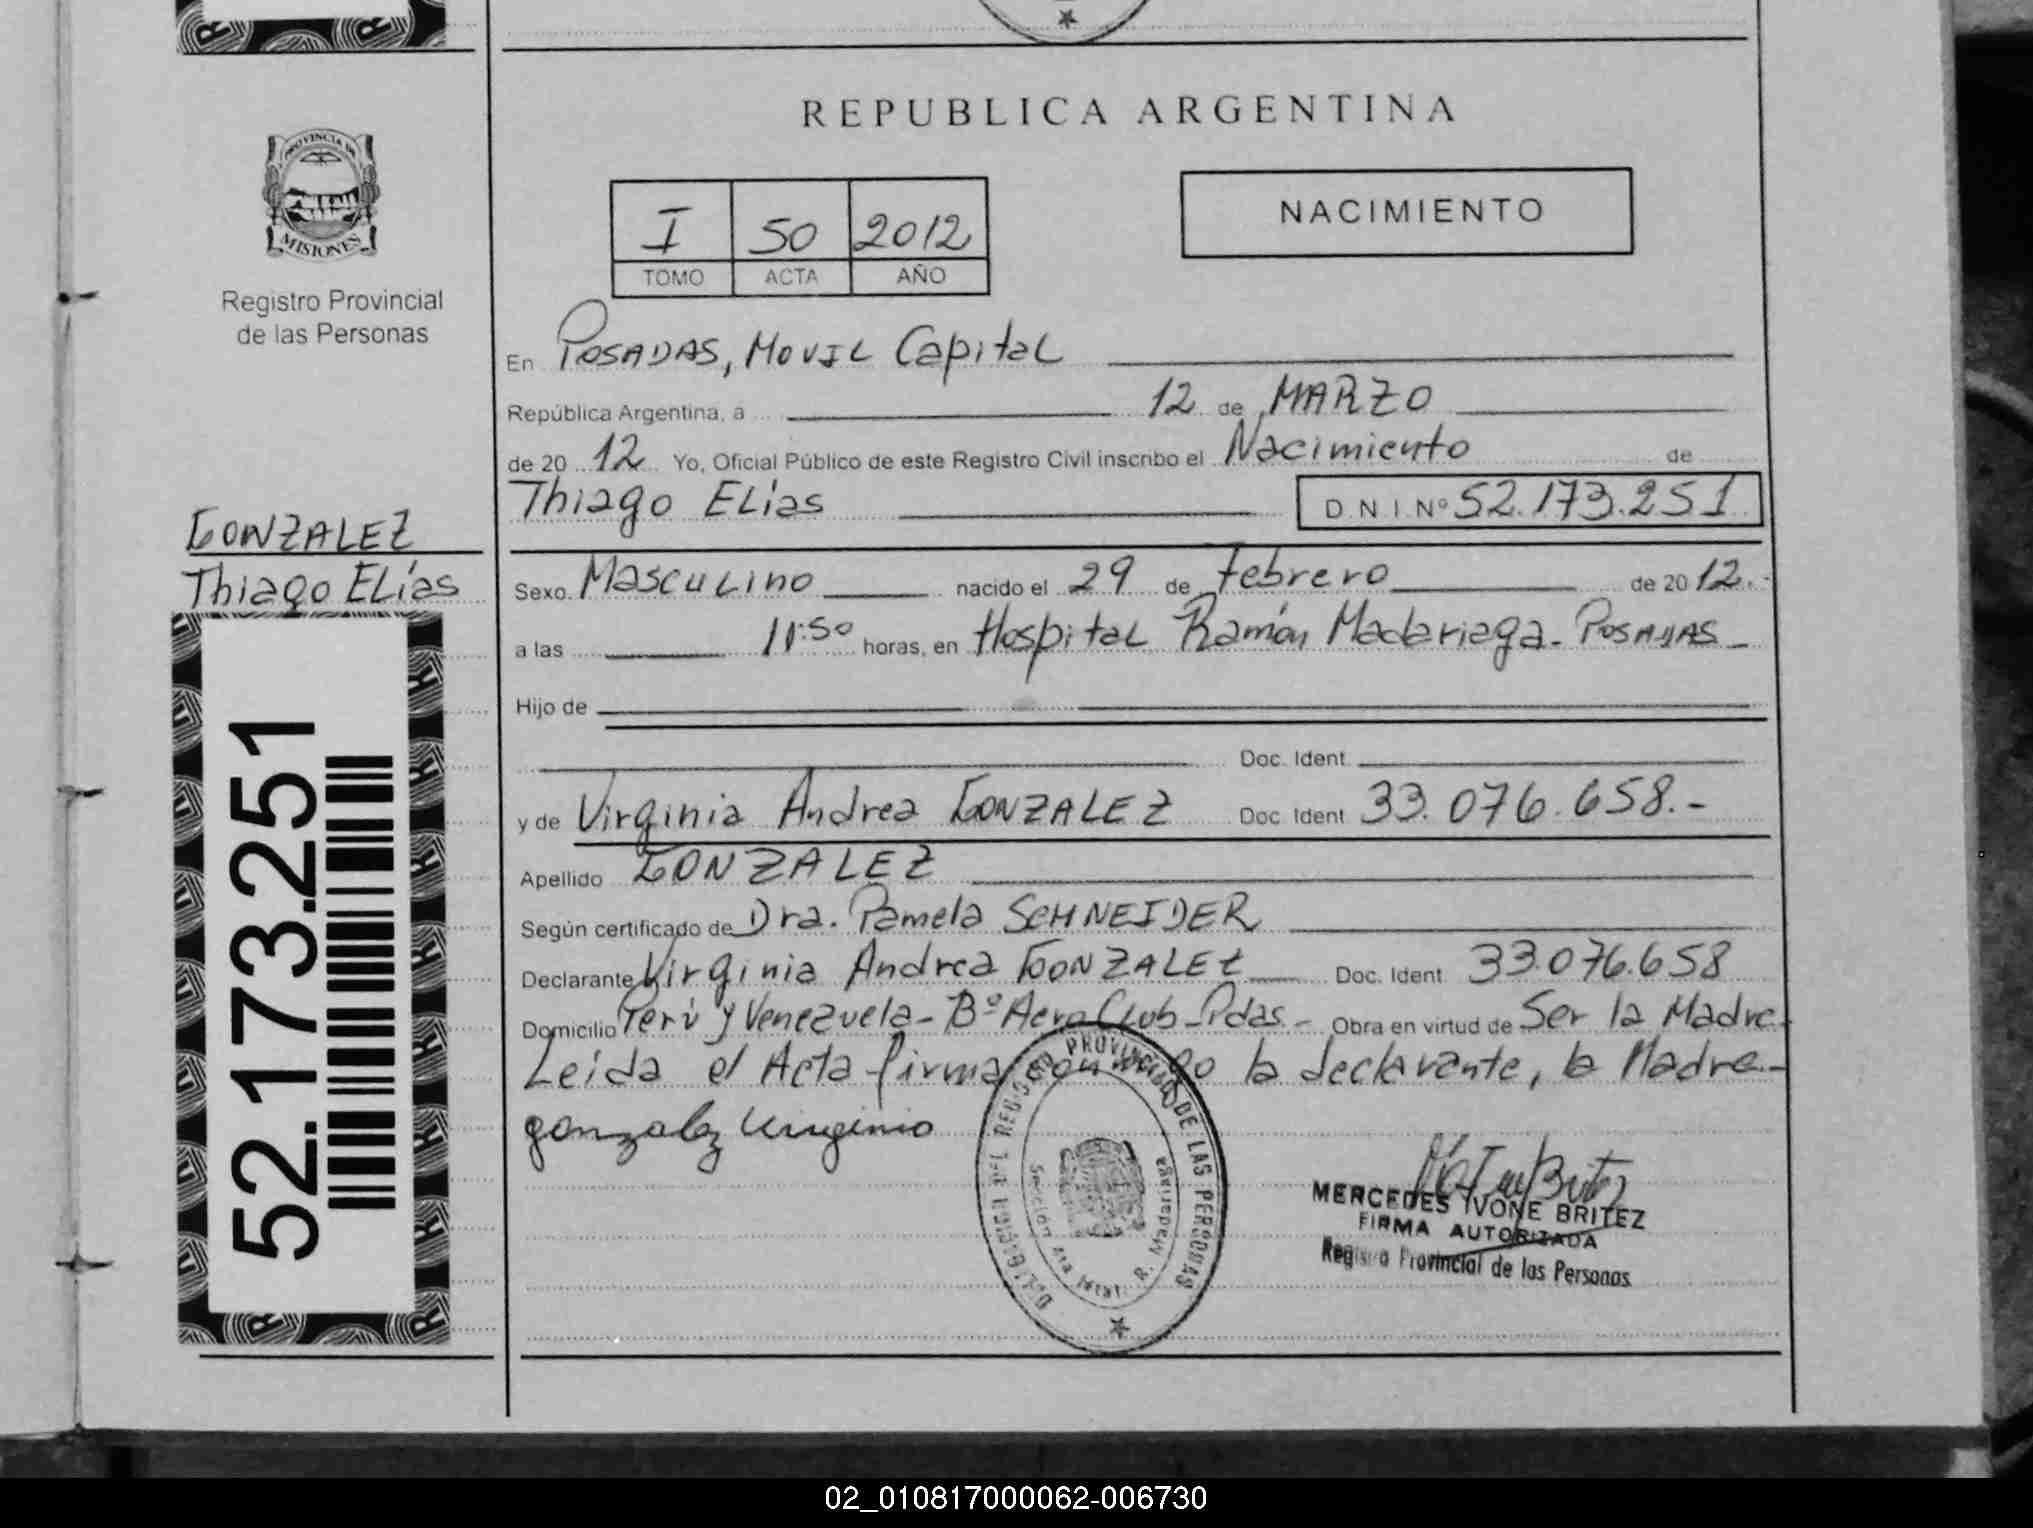 REPUBLICA ARGENTINA
PROVINCIA DE
MISIONES
Registro Provincial
de las Personas
I 50 2012
TOMO ACTA AÑO
NACIMIENTO
En Posadas, Movil Capital
República Argentina, a 12 de Marzo
de 20 12 Yo, Oficial Público de este Registro Civil inscribo el Nacimiento de
Thiago Elías D.N.I. Nº 52.173.251
GONZALEZ
Thiago Elías
52.173.251
Sexo Masculino nacido el 29 de Febrero de 20 12.-
a las 11:50 horas, en Hospital Ramón Madariaga - Posadas
Hijo de
Doc. Ident.
y de Virginia Andrea GONZALEZ Doc. Ident. 33.076.658.-
Apellido GONZALEZ
Según certificado de Dra. Pamela SCHNEIDER
Declarante Virginia Andrea GONZALEZ Doc. Ident. 33.076.658
Domicilio Perú y Venezuela - Bº Aero Club - Pdas. - Obra en virtud de Ser la Madre.
Leída el Acta firma conmigo la declarante, la Madre.-
gonzalez Virginia
PROVINCIAL DE LAS PERSONAS
R. Madariaga
MERCEDES IVONE BRITEZ
FIRMA AUTORIZADA
Registro Provincial de las Personas
02_010817000062-006730